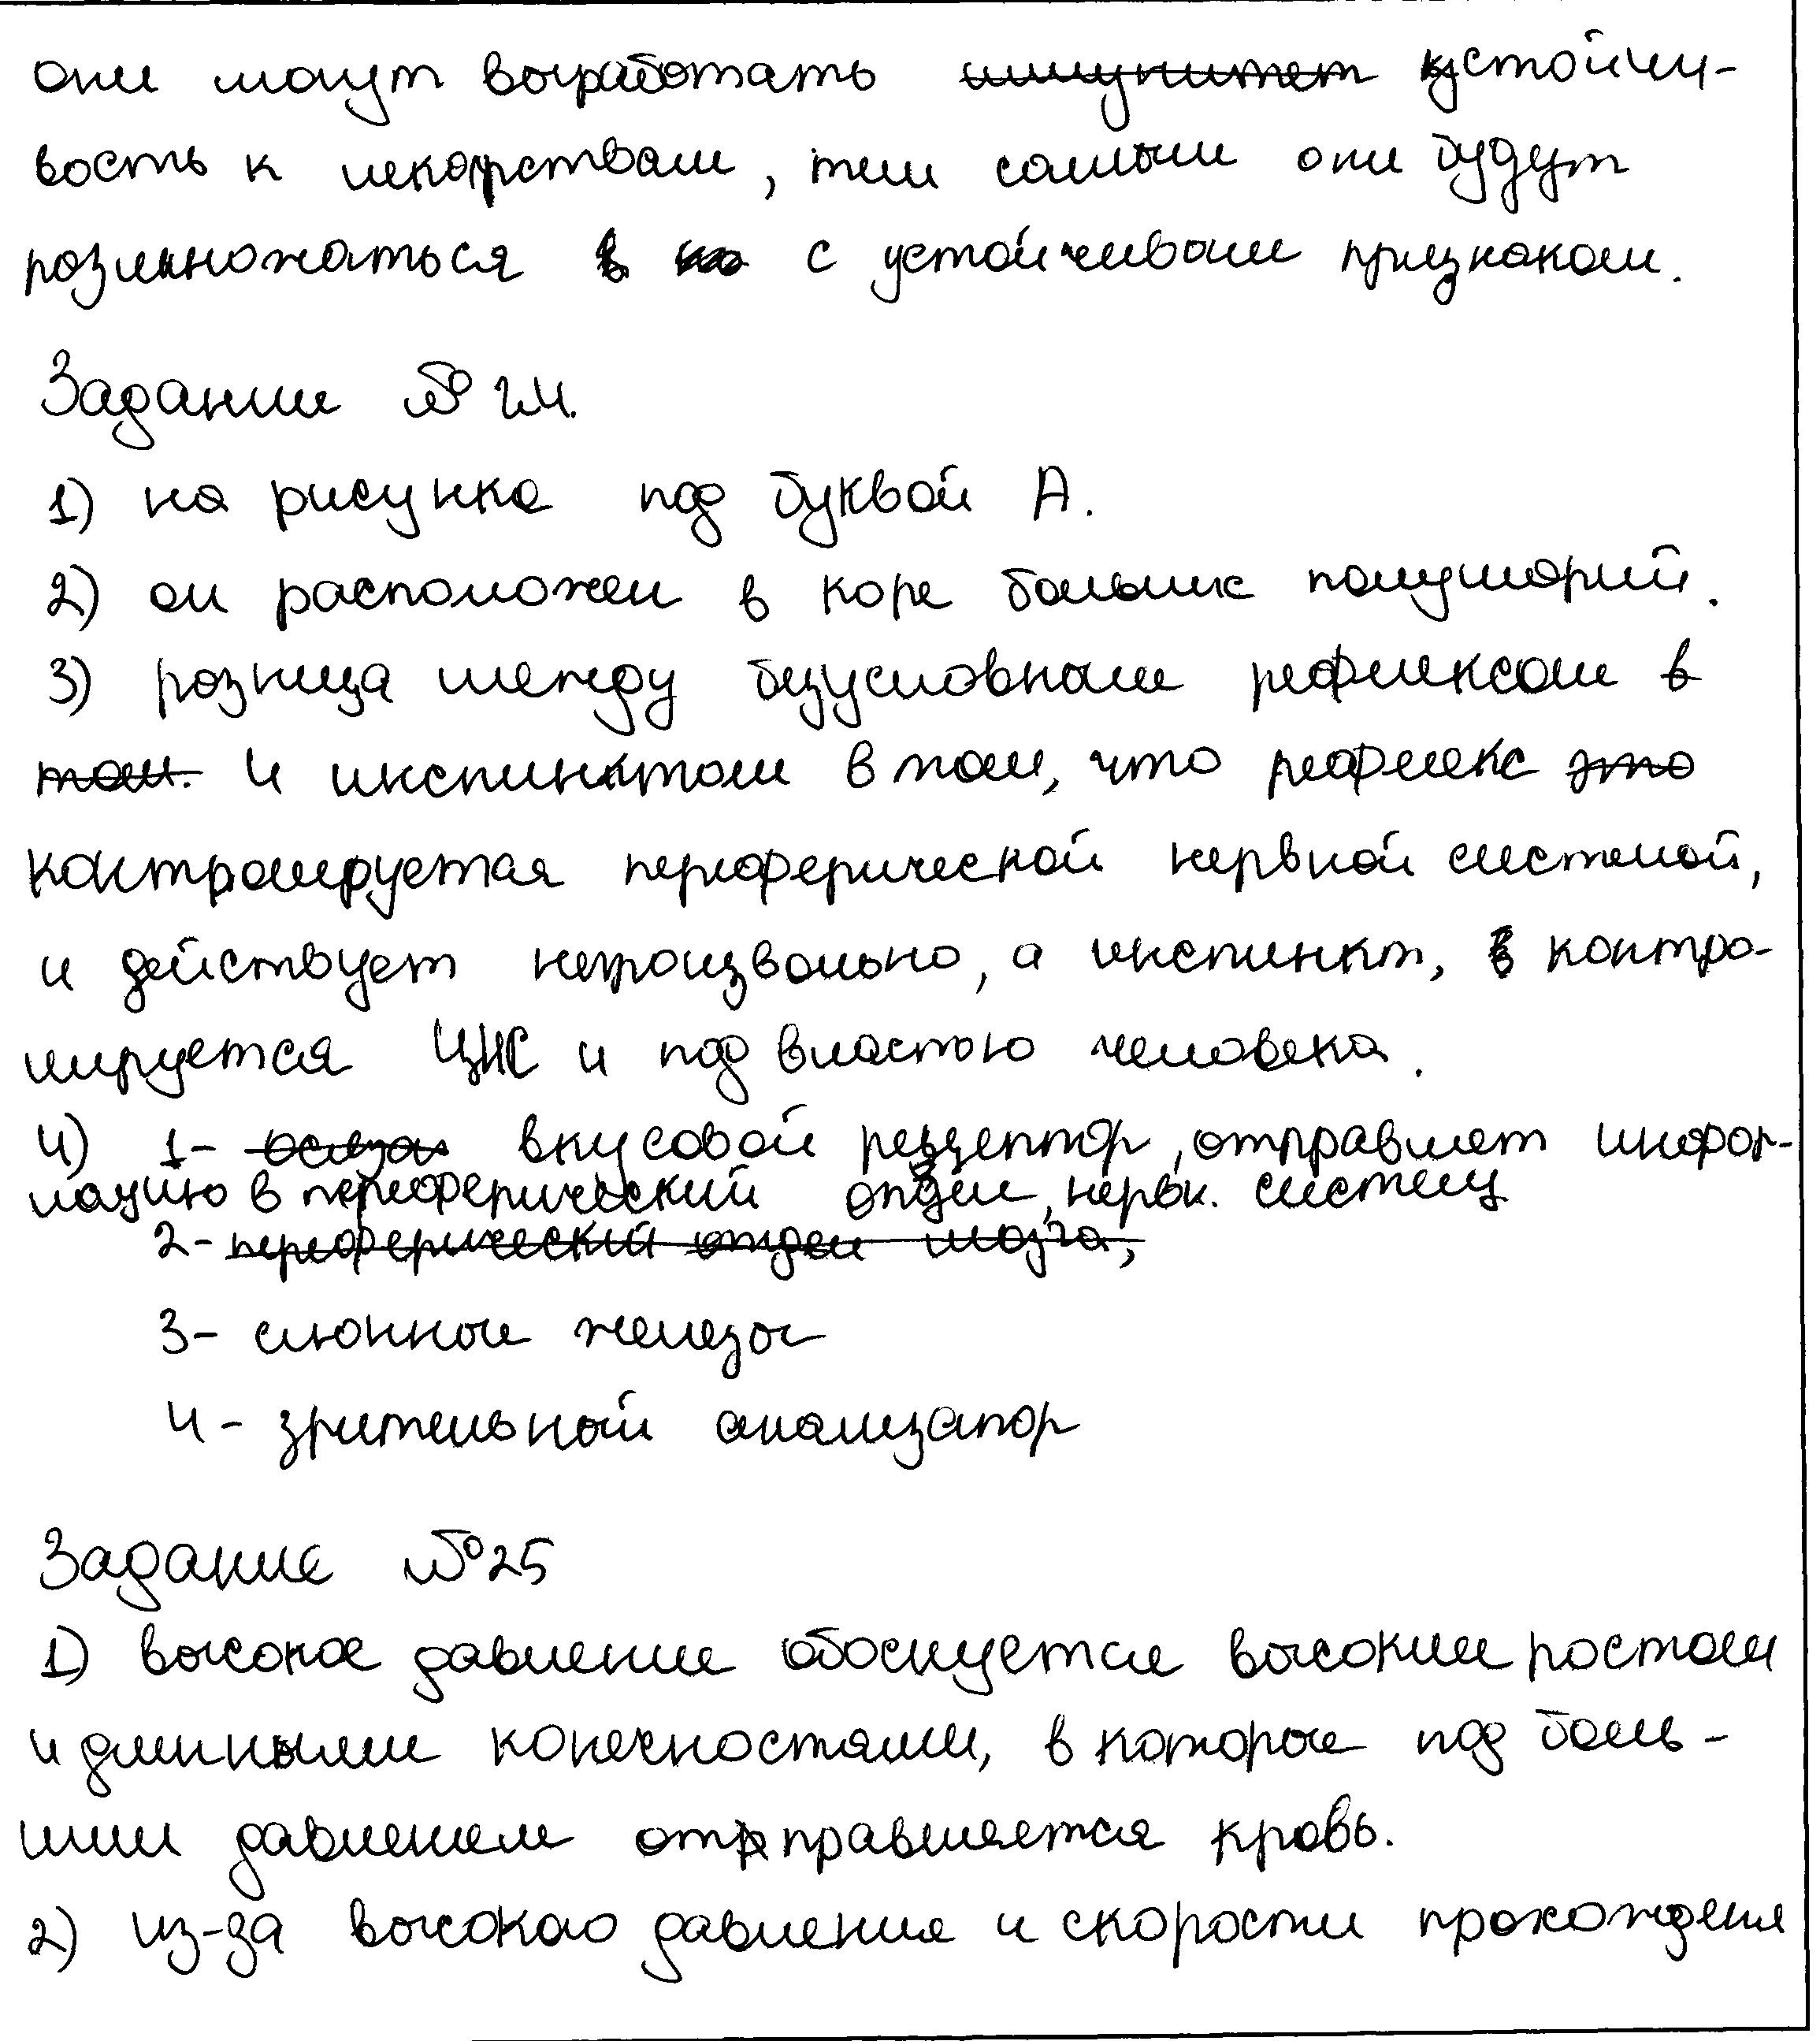 они могут выработать ~~иммунитет~~ устойчи-
вость к лекарствам, тем самым они будут
размножаться ~~в~~ ~~на~~ с устойчивым признаком.
Задание № 24.
1) на рисунке под буквой А.
2) он расположен в коре больших полушарий.
3) разница между безусловным рефлексом ~~в~~
~~том.~~ и инстинктом в том, что рефлекс ~~это~~
контролируется переферической нервной системой,
и действует непроизвольно, а инстинкт, контро-
лируется ЦНС и под властью человека.
4) 1- вкусовой рецептор, отправляет инфор-
мацию в переферический отдел нервн. системы
2- ~~переферический отдел мозга,~~
3- слюнные железы
4- зрительный анализатор
Задание №25
1) высокое давление обоснуется высоким ростом
и длинными конечностями, в которые под боль-
шим давлением отправляется кровь.
2) из-за высокого давления и скорости прохождения